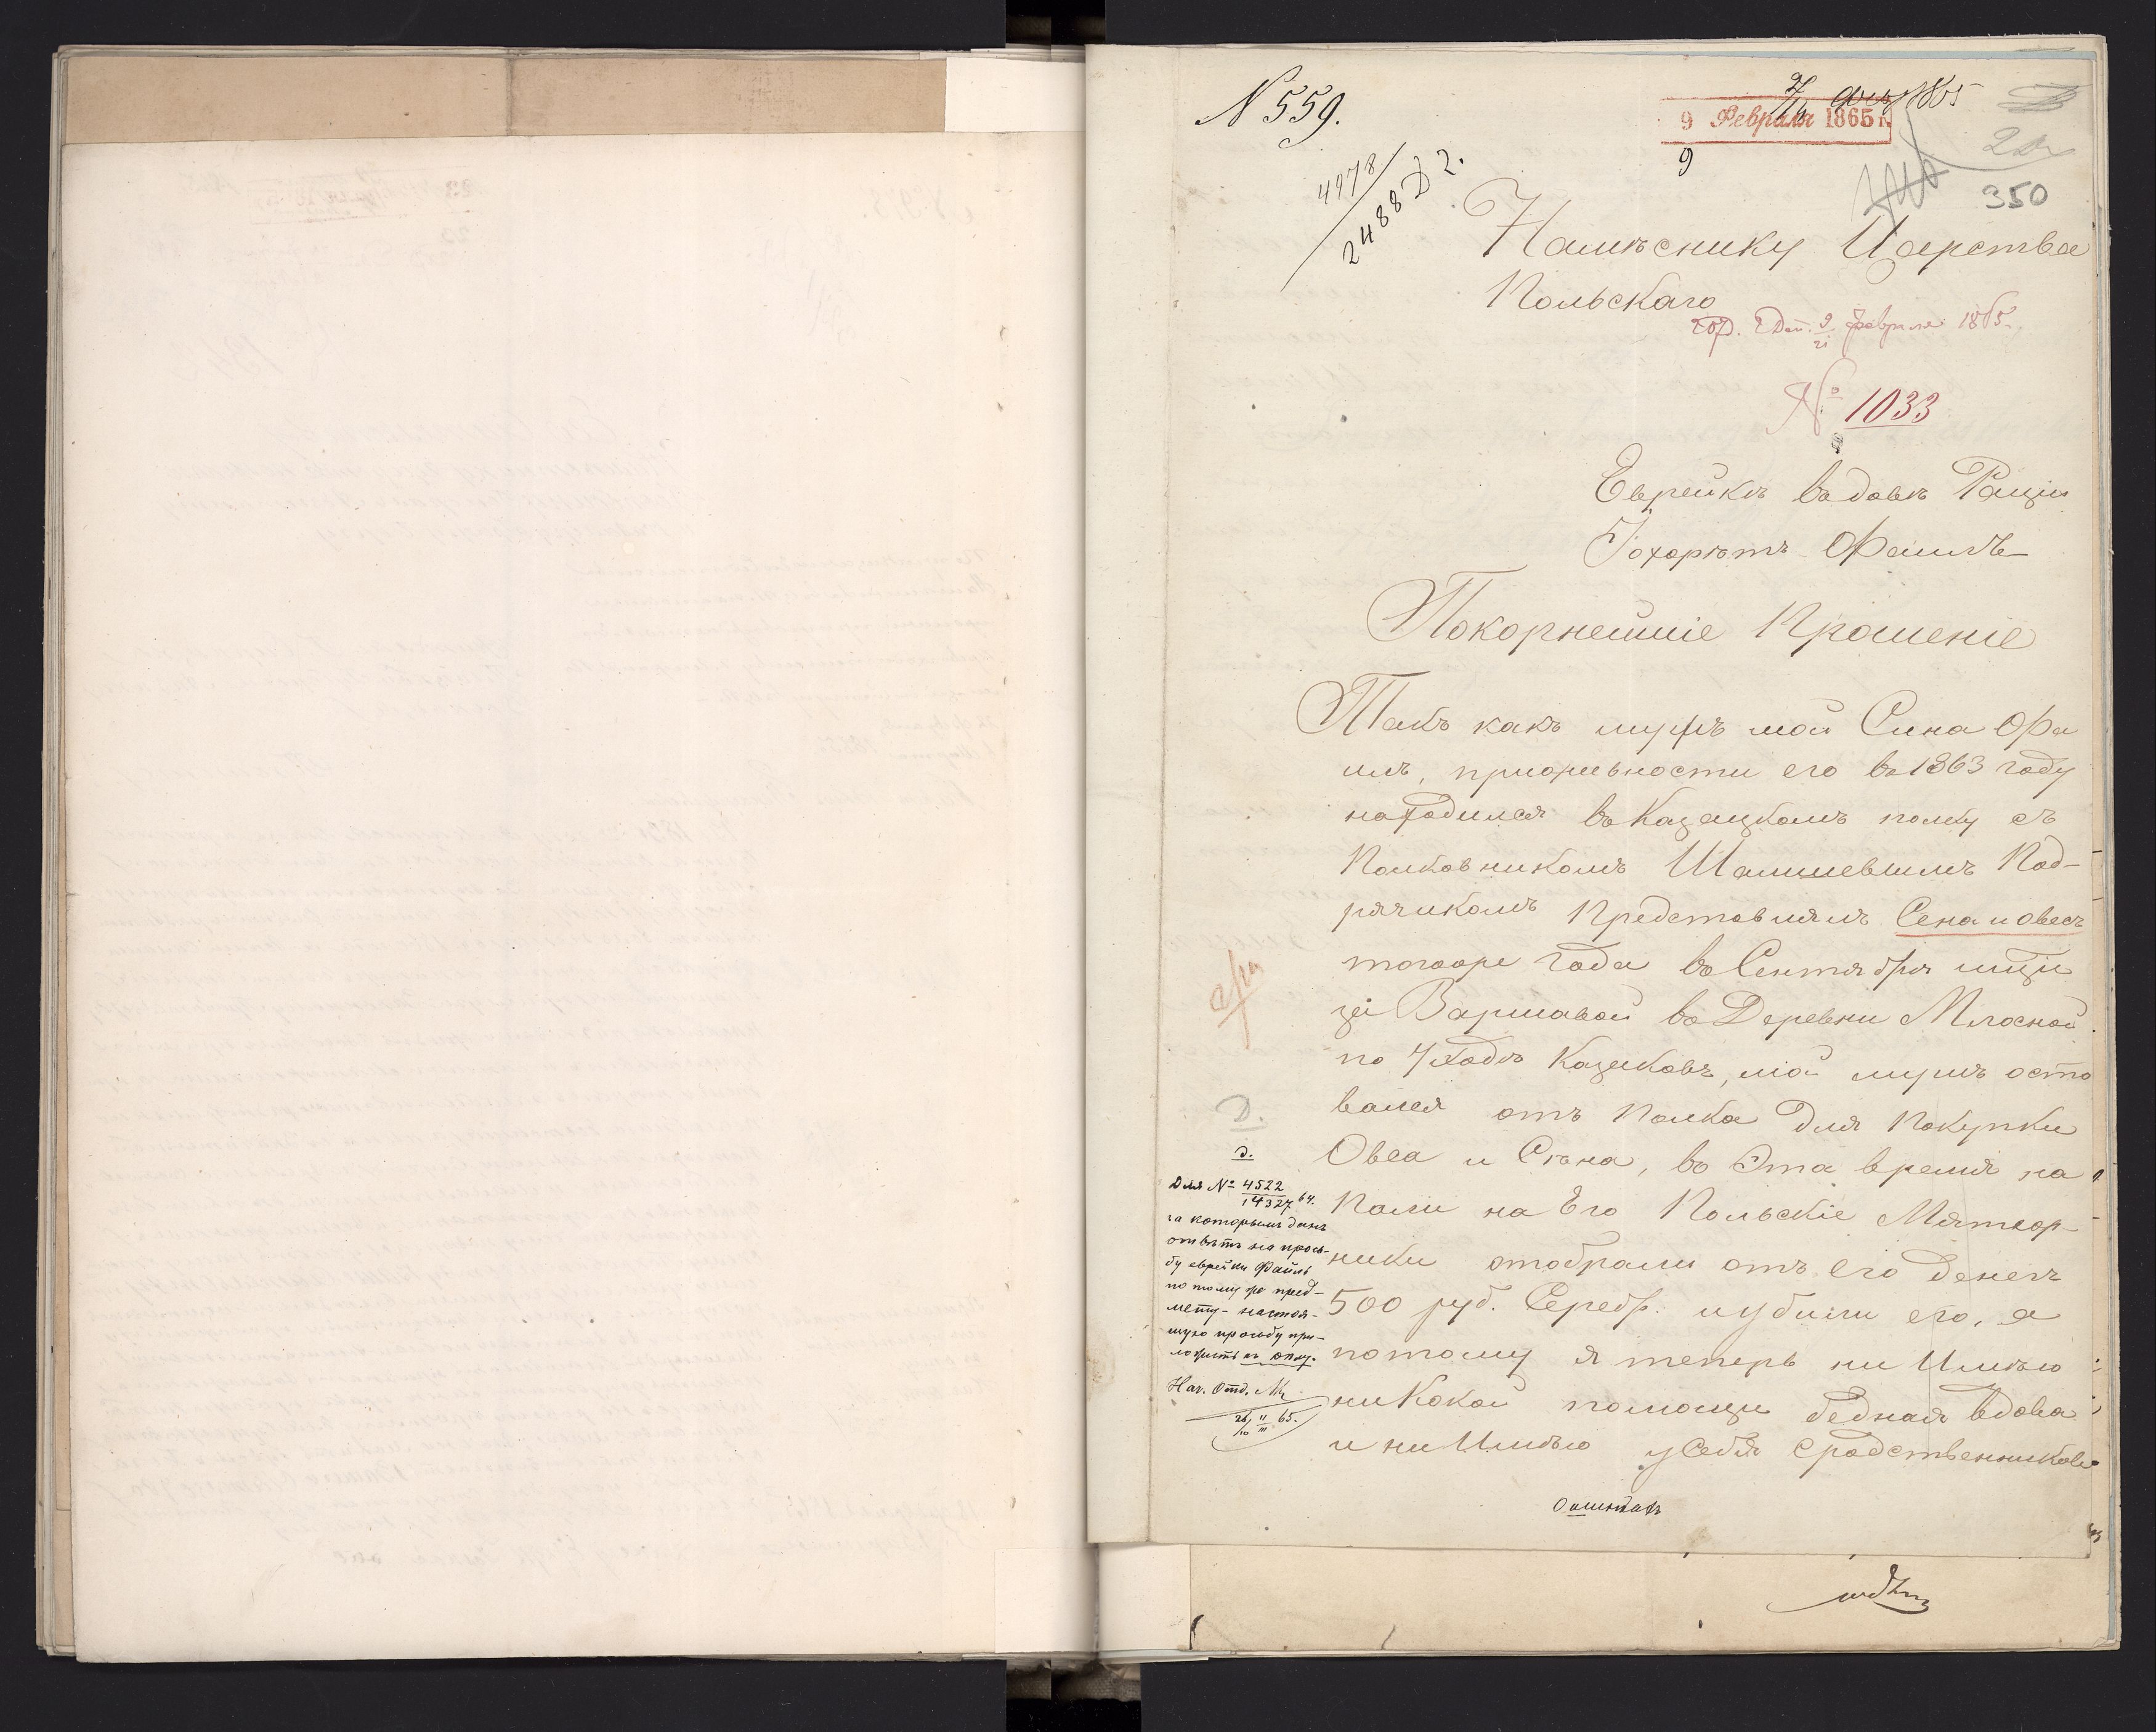 N 559.
9 Февраля 1865 г.
9
4978
2488 Д 2.
350
Намѣснику Царства
Польскаго
2 Деп. 9/21 февраля 1865.
№ 1033
Еврейкѣ вдовѣ
Фаилъ
Покорнейшіе Прошеніе
Такъ какъ мужъ мой Сина Фа
илъ, его въ 1863 году
находился въ Казацкомъ полку съ
Полковникомъ Под-
рячикомъ Представлялъ Сена и овесъ
тогоже года въ Сентября
за Варшавой въ Деревни Млосной
по Уходѣ Казаковъ, мой мужъ оста
вался отъ Полка для Покупки
Овса и Сѣна, въ Эта время на
Пали на Его Польскіе Мятеж-
ники отобрали отъ его денегъ
500 руб. Серебр. иубили его, а
потому я теперь ни Имѣю
никокой помощи бедная вдова
и ни Имѣю уСебя Сродственниковъ
Д.
Для № 4522/14327 64.
за которымъ данъ
отвѣтъ на прось-
бу еврейки Файль
по тому же пред-
мету - настоя-
щую прозьбу при-
ложить къ
Нач. Отд.
26/10 II/III 65.